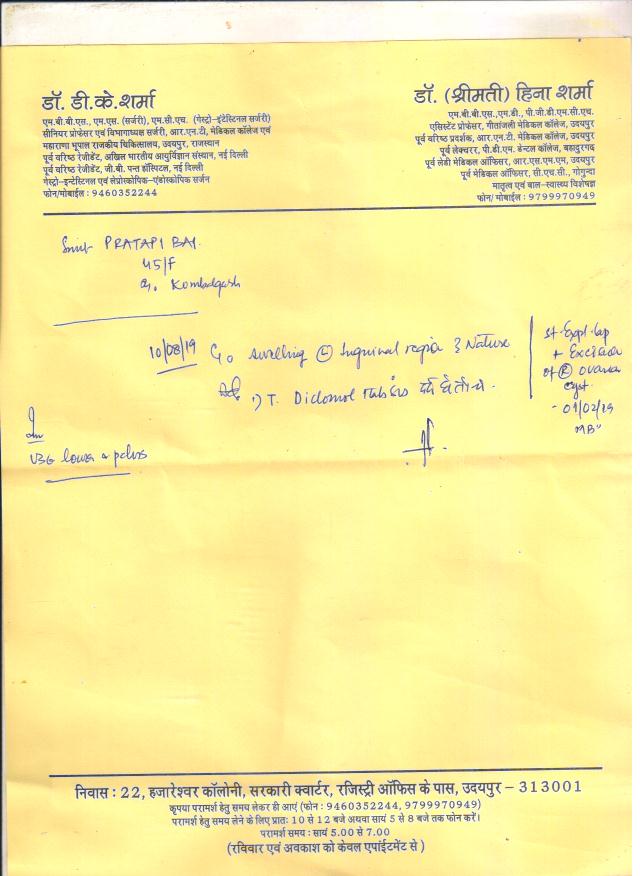 डॉ. डी.के.शर्मा
एम.बी.बी.एस., एम.एस. (सर्जरी), एम.सी.एच. (गेस्ट्रो-इंटेस्टिनल सर्जरी)
सीनियर प्रोफेसर एवं विभागाध्यक्ष सर्जरी, आर.एन.टी. मेडिकल कॉलेज एवं
महाराणा भूपाल राजकीय चिकित्सालय, उदयपुर, राजस्थान
पूर्व वरिष्ठ रेजीडेंट, अखिल भारतीय आयुर्विज्ञान संस्थान, नई दिल्ली
पूर्व वरिष्ठ रेजीडेंट, जी.बी. पन्त हॉस्पिटल, नई दिल्ली
गेस्ट्रो-इन्टेस्टिनल एवं लेप्रोस्कोपिक-एंडोस्कोपिक सर्जन
फोन/मोबाईल : 9460352244
डॉ. (श्रीमती) हिना शर्मा
एम.बी.बी.एस.,एम.डी., पी.जी.डी.एम.सी.एच.
एसिस्टेंट प्रोफेसर, गीतांजली मेडिकल कॉलेज, उदयपुर
पूर्व वरिष्ठ प्रदर्शक, आर.एन.टी. मेडिकल कॉलेज, उदयपुर
पूर्व लेक्चरर, पी.डी.एम. डेन्टल कॉलेज, बहादुरगढ़
पूर्व लेडी मेडिकल ऑफिसर, आर.एस.एम.एम, उदयपुर
पूर्व मेडिकल ऑफिसर, सी.एच.सी., गोगुन्दा
मातृत्व एवं बाल-स्वास्थ्य विशेषज्ञ
फोन/ मोबाईल : 9799970949
Smt PRATAPI BAI
45/F
10/08/19 swelling Ⓛ Inguinal region
1) T. Diclomol
+ Excision
of Ⓡ ovarian
cyst
- 01/02/19
lower & pelvis
निवास : 22, हजारेश्वर कॉलोनी, सरकारी क्वार्टर, रजिस्ट्री ऑफिस के पास, उदयपुर – 313001
कृपया परामर्श हेतु समय लेकर ही आएं (फोन : 9460352244, 9799970949)
परामर्श हेतु समय लेने के लिए प्रातः 10 से 12 बजे अथवा सायं 5 से 8 बजे तक फोन करें।
परामर्श समय : सायं 5.00 से 7.00
(रविवार एवं अवकाश को केवल एपांईटमेंट से )